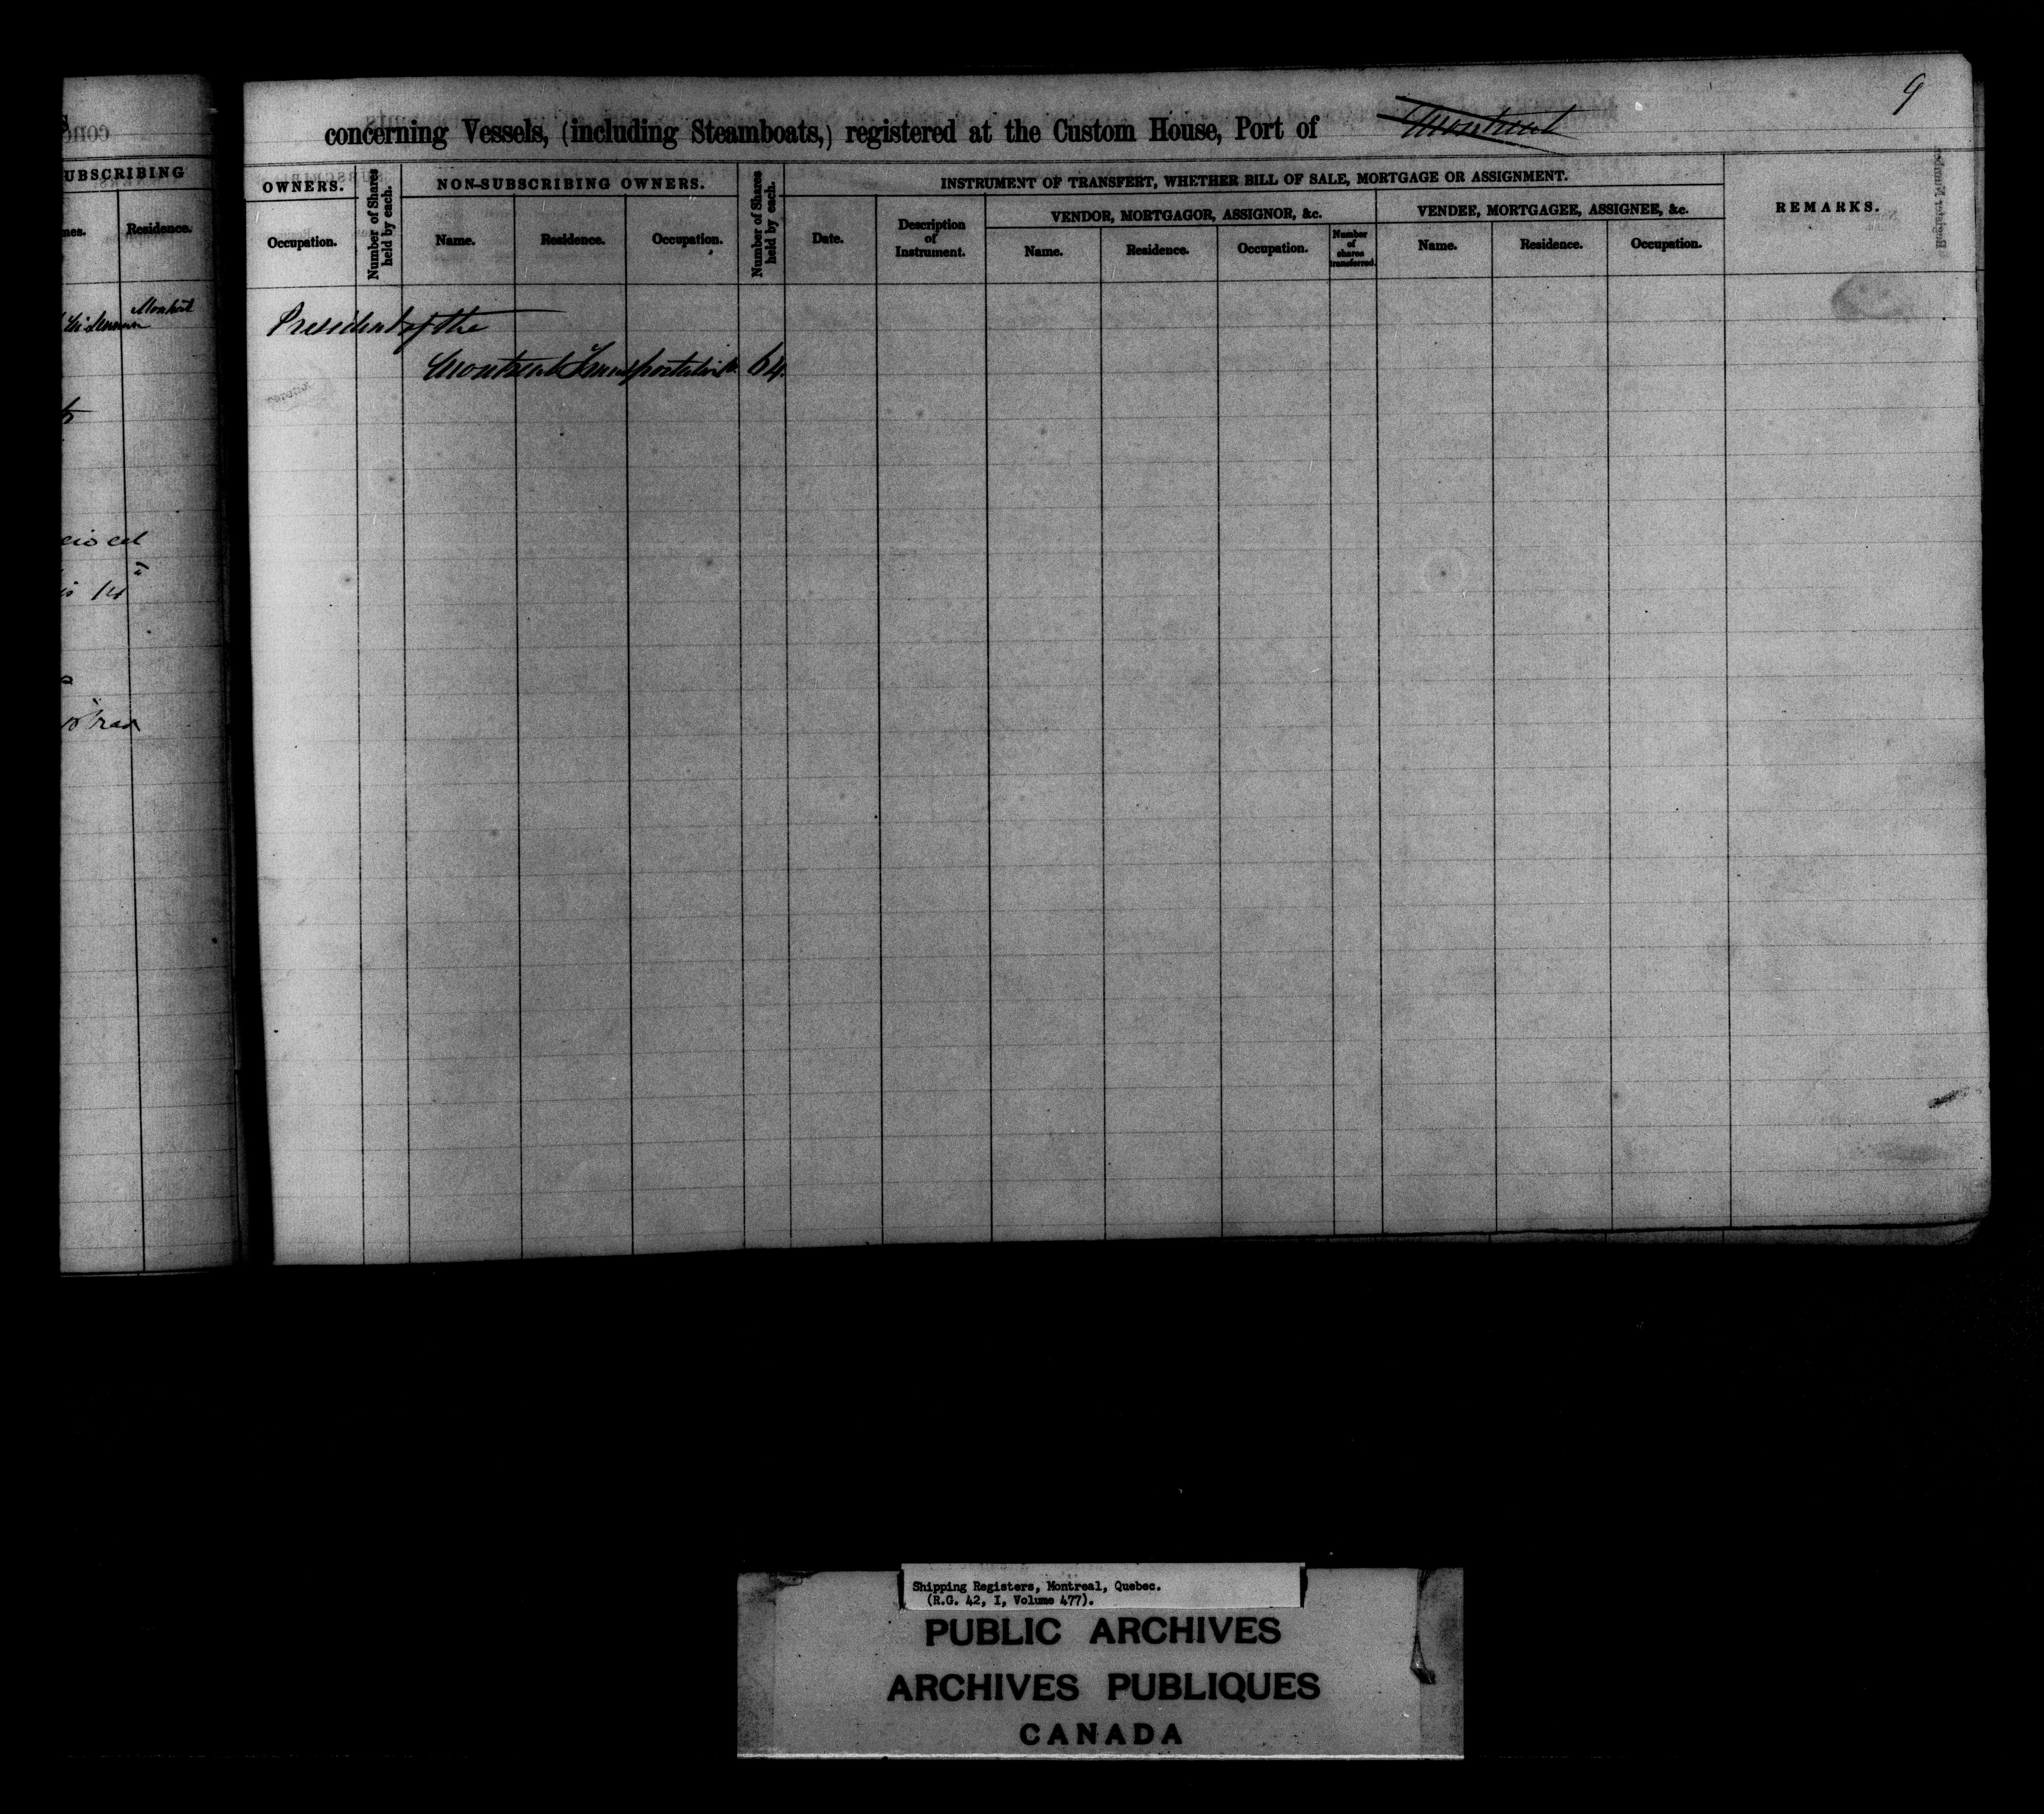 9
concerning Vessels, (including Steamboats,) registered at the Custom House, Port of Montreal
UBSCRIBING
mes.
Residence.
OWNERS.
Occupation.
Number of Shares held by each.
NON-SUBSCRIBING OWNERS.
Name.
Residence.
Occupation.
Number of Shares held by each.
INSTRUMENT OF TRANSFERT, WHETHER BILL OF SALE, MORTGAGE OR ASSIGNMENT.
Date.
Description
of
Instrument.
VENDOR, MORTGAGOR, ASSIGNOR, &c.
Name.
Residence.
Occupation.
Number
of
shares
transferred.
VENDEE, MORTGAGEE, ASSIGNEE, &c.
Name.
Residence.
Occupation.
REMARKS.
Montreal
President of the
Montreal Transportation Co. 64.
Shipping Registers, Montreal, Quebec.
(R.G. 42, I, Volume 477).
PUBLIC ARCHIVES
ARCHIVES PUBLIQUES
CANADA